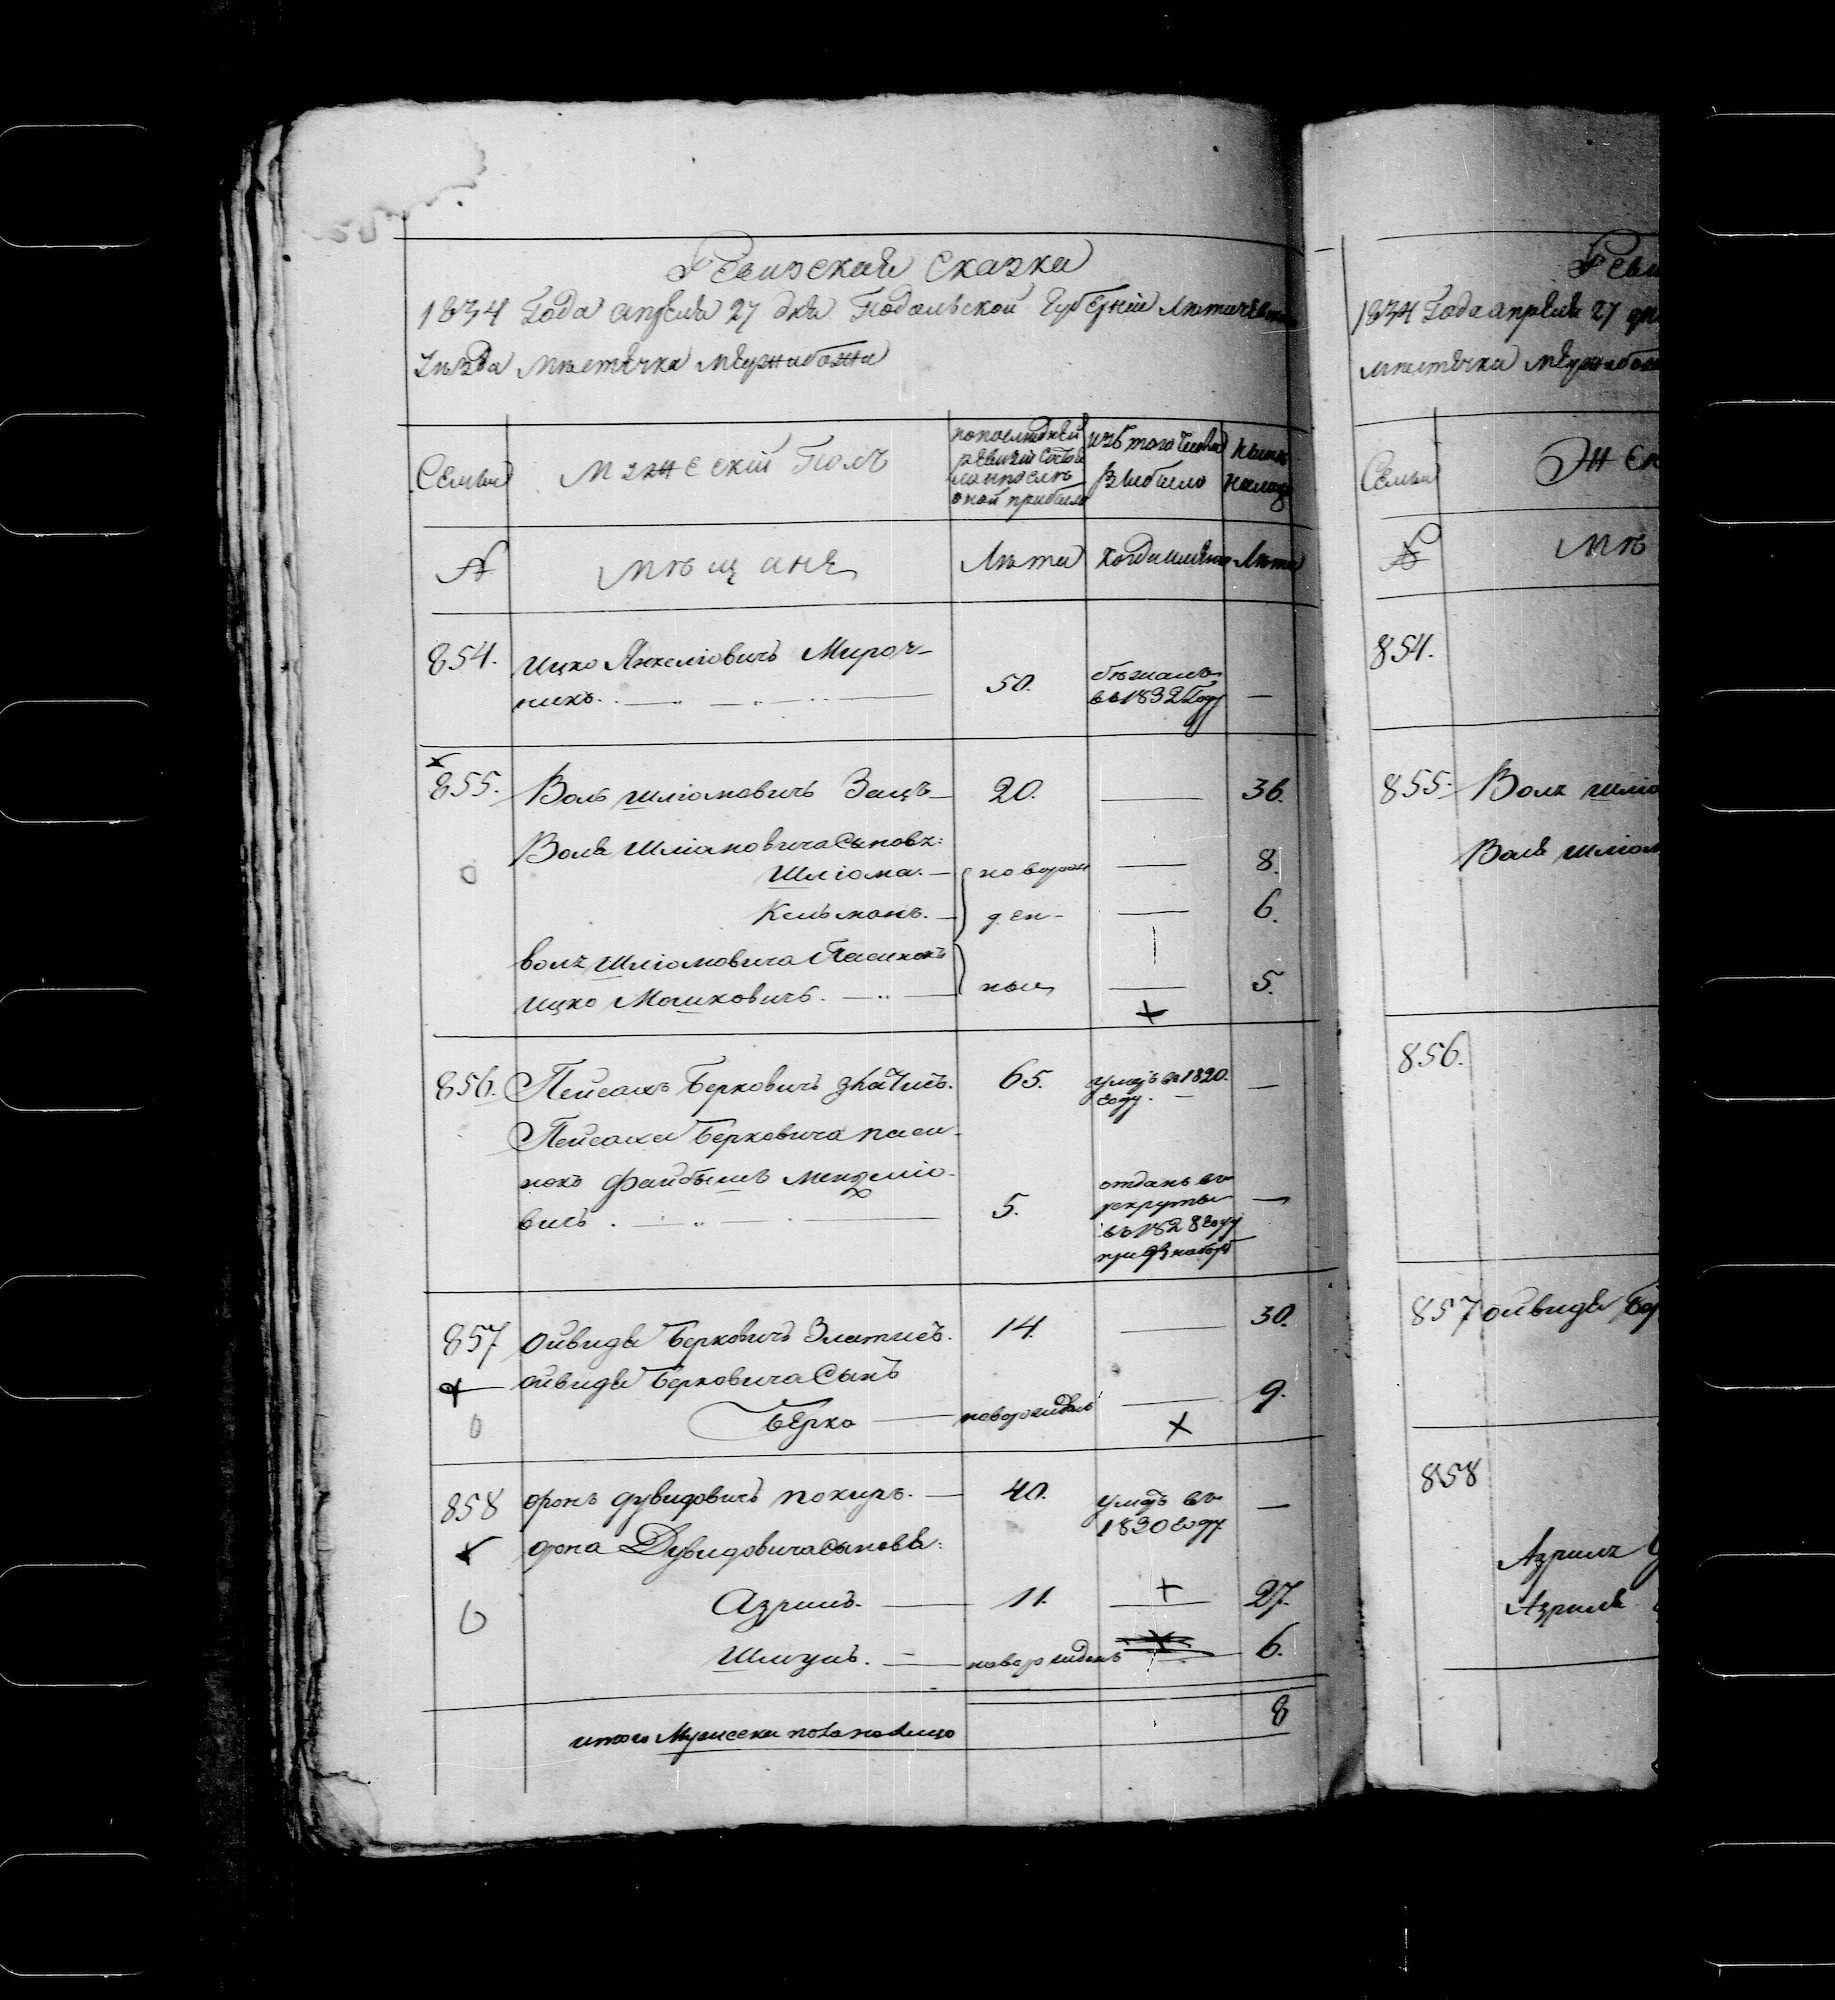 Ревизская сказка
1834 Года апреля 27 дня Подольской Губернии Летичевского
уезда местечка межибожа
Семьи
мужеский Полъ
по последней ревизии состояло и после оной прибыло
изъ того числа выбыло
ныне на лицо
№
мещане
Лета
когда именно
Лета
854. Ицко Янкелiовичъ Мироч-
никъ. 50. бежалъ въ 1832 Году —
855. Воль Шлiомовичъ Зацъ — 20. — 36.
Воля Шлiомовича Сыновья:
Шлiома. — новорож 8.
Кельманъ. — ден- — 6.
воля Шлiомовича Пасинокъ
Ицко Мошковичъ. — ные — 5.
856. Пейсахъ Берковичъ 65. умеръ въ 1820. году. —
Пейсаха Берковича паси-
нокъ Файбышъ Менделiо-
вичъ. 5. отданъ въ рекруты въ 1828 году при наборе —
857 ойвидя Берковичъ Златисъ. 14. — 30.
ойвидя Берковича Сынъ
Берко — новорожденъ — 9.
858 оронъ дувидовичъ покиръ. — 40. умеръ въ 1830 году. —
орона Дувидовича сыновья:
Азрилъ. — 11. — 27.
Шмуль. — новорожденъ 6.
итого Мужеска пола налицо 8
1834 Года апреля 27 дня
местечка межибож
Семьи
854.
855. Воля Шлiо
Воля Шлiом
856.
857 ойвидя Бер
858
Азрила
Азриля